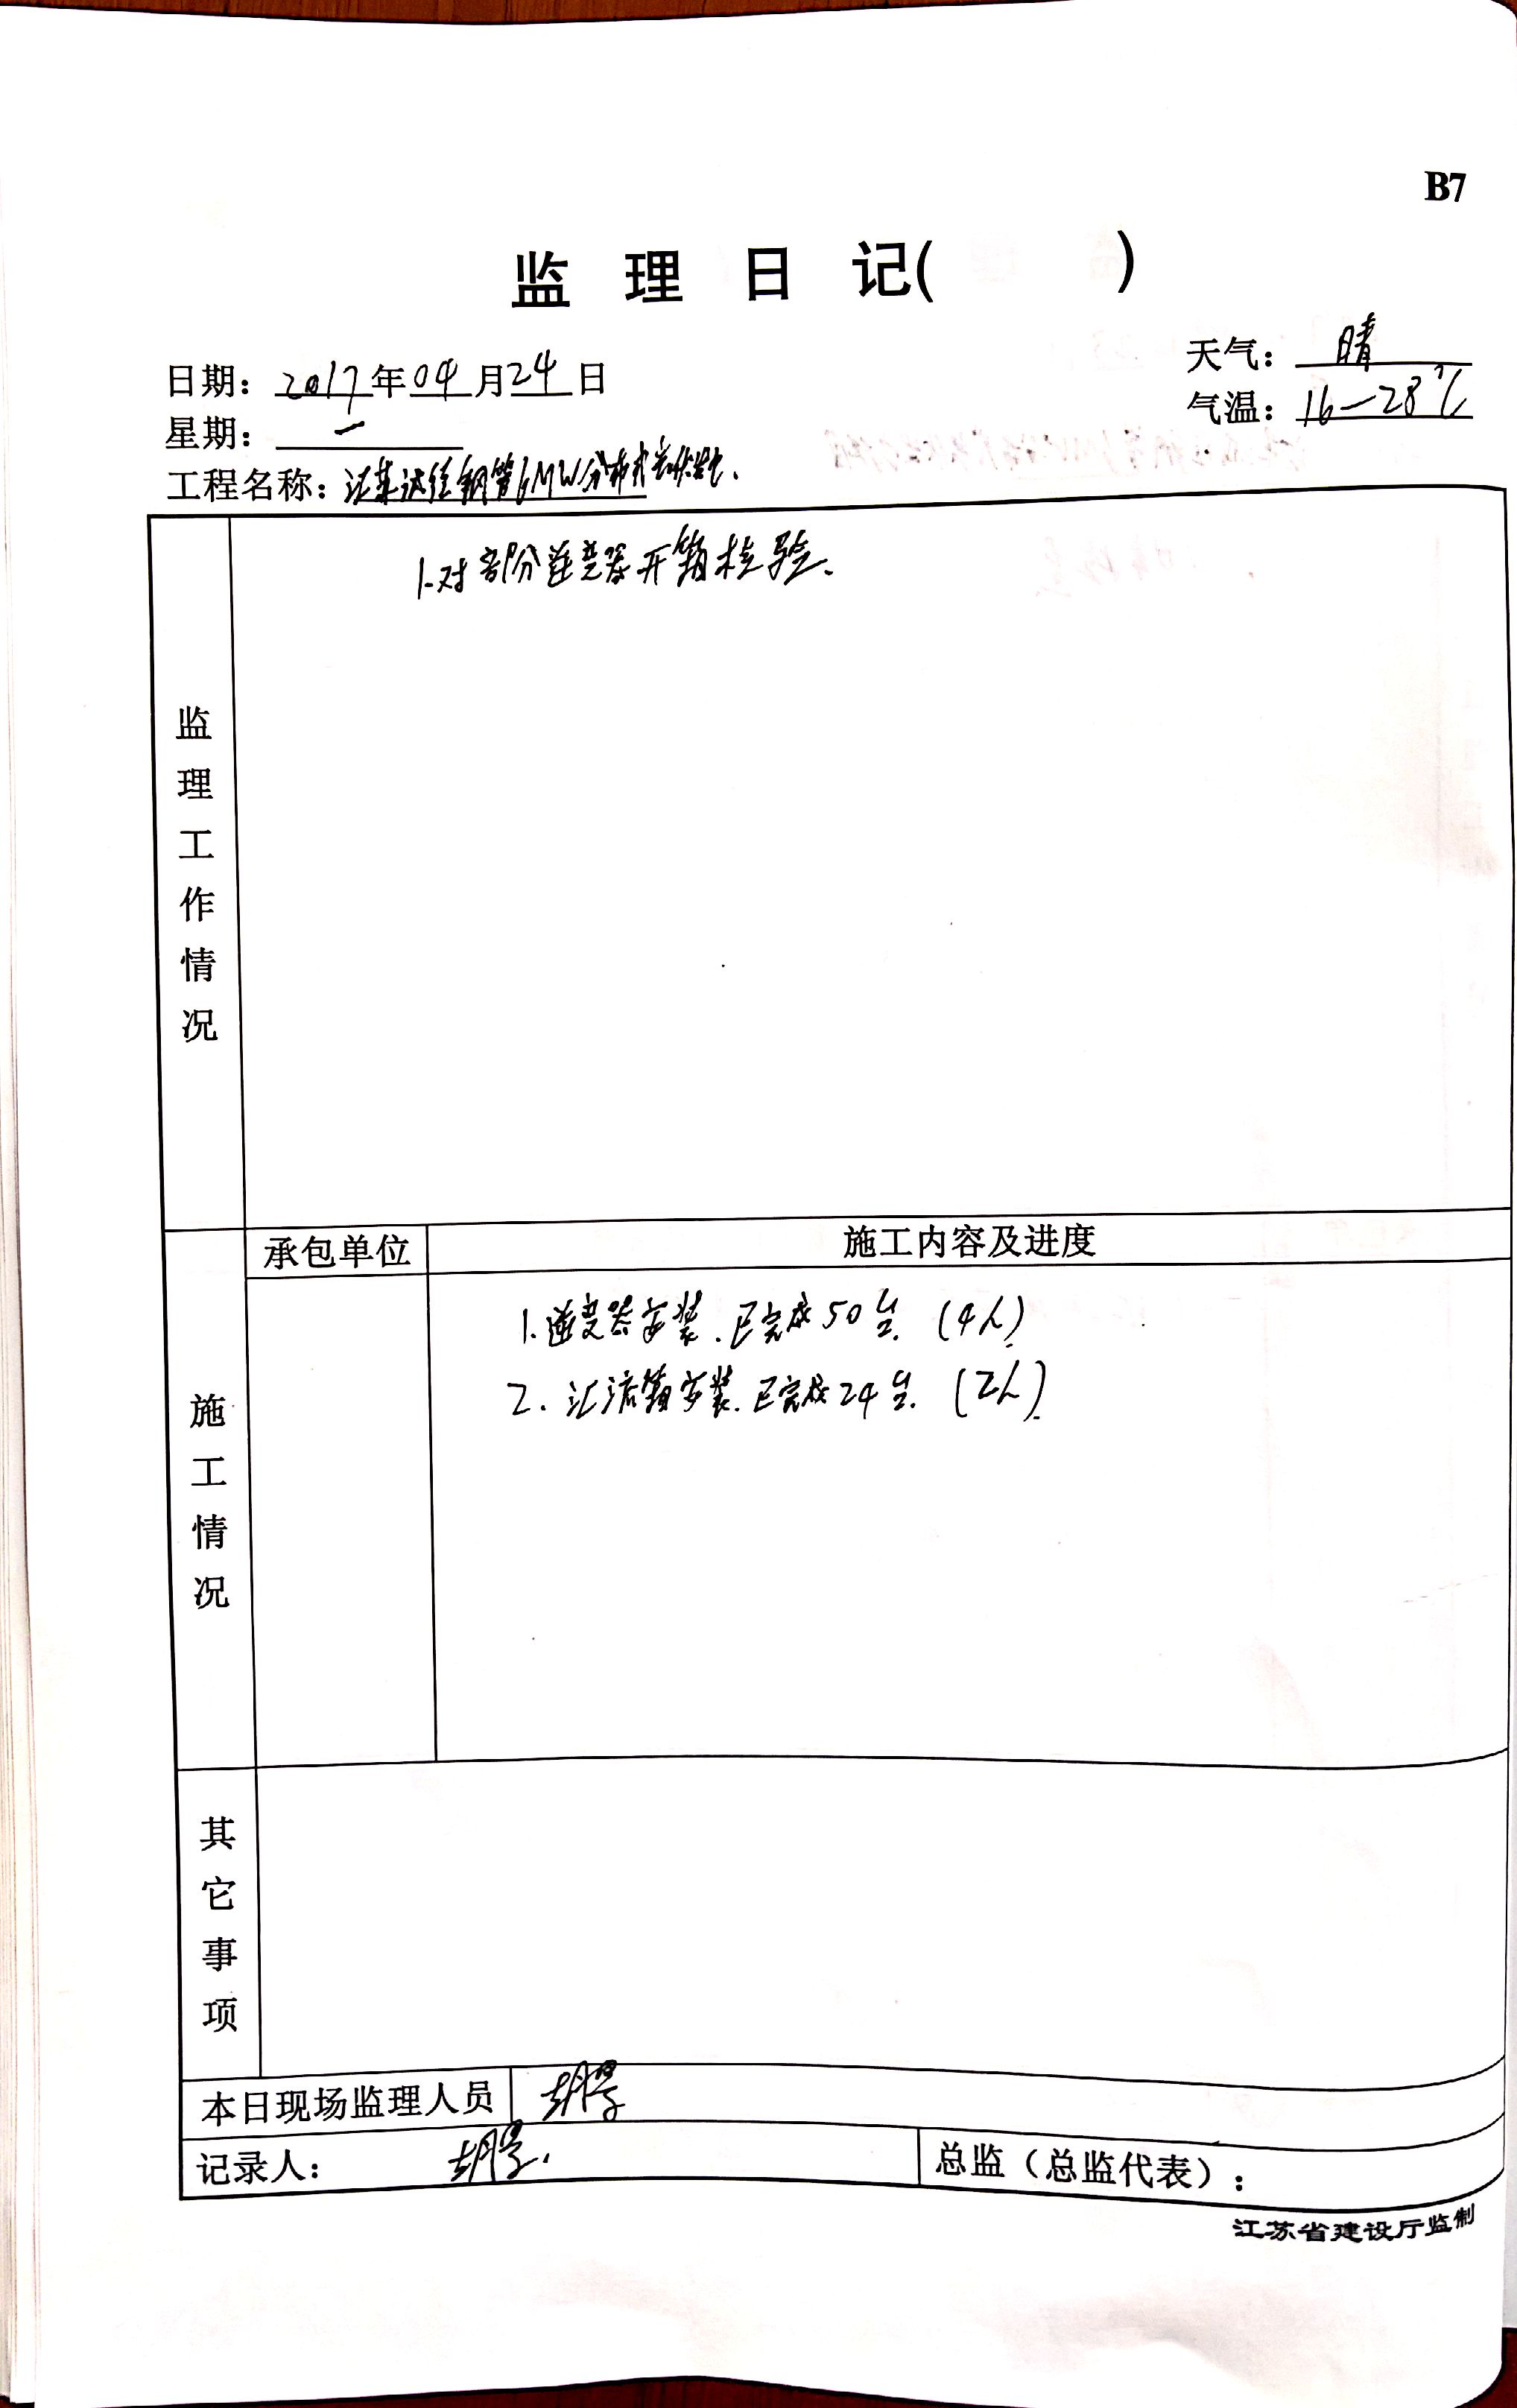 B7
监理日记( )
日期：2017年04月24日
天气：晴
星期：一
气温：16—28℃
工程名称：江苏达钢管6MW分布式光伏发电.
1.对部分逆变器开箱检验.
监理工作情况
承包单位 施工内容及进度
1.逆变器安装.已完成50台.(4人)
2.汇流箱安装.已完成24台.(2人)
施工情况
其它事项
本日现场监理人员 胡
记录人：胡
总监（总监代表）：
江苏省建设厅监制